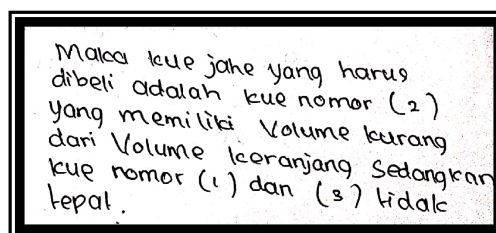 Maka kue jahe yang harus
dibeli adalah kue nomor (2)
yang memiliki Volume kurang
dari Volume keranjang Sedangkan
kue nomor (1) dan (3) tidak
tepat.